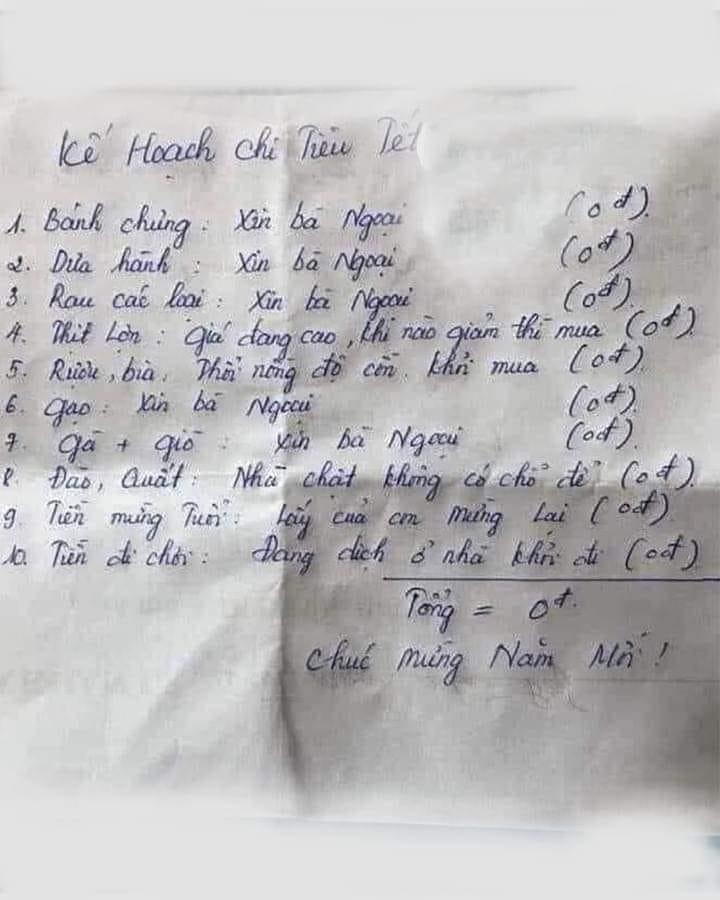 Kế Hoạch Chi Tiêu Tết
1. Bánh chưng: Xin bà Ngoại (0đ).
2. Dưa hành: Xin bà Ngoại (0đ)
3. Rau các loại: Xin bà Ngoại (0đ).
4. Thịt Lợn: giá đang cao, khi nào giảm thì mua (0đ).
5. Rượu, bia. Thổi nồng độ cồn. khỏi mua (0đ).
6. Gạo: Xin bà Ngoại (0đ).
7. Gà + giò: Xin bà Ngoại (0đ).
8. Đào, Quất: Nhà chật không có chỗ để (0đ).
9. Tiền mừng Tuổi: Lấy của con mừng lại (0đ).
10. Tiền đi chơi: Đang dịch ở nhà khỏi đi (0đ)
Tổng = 0đ.
Chúc mừng Năm Mới!